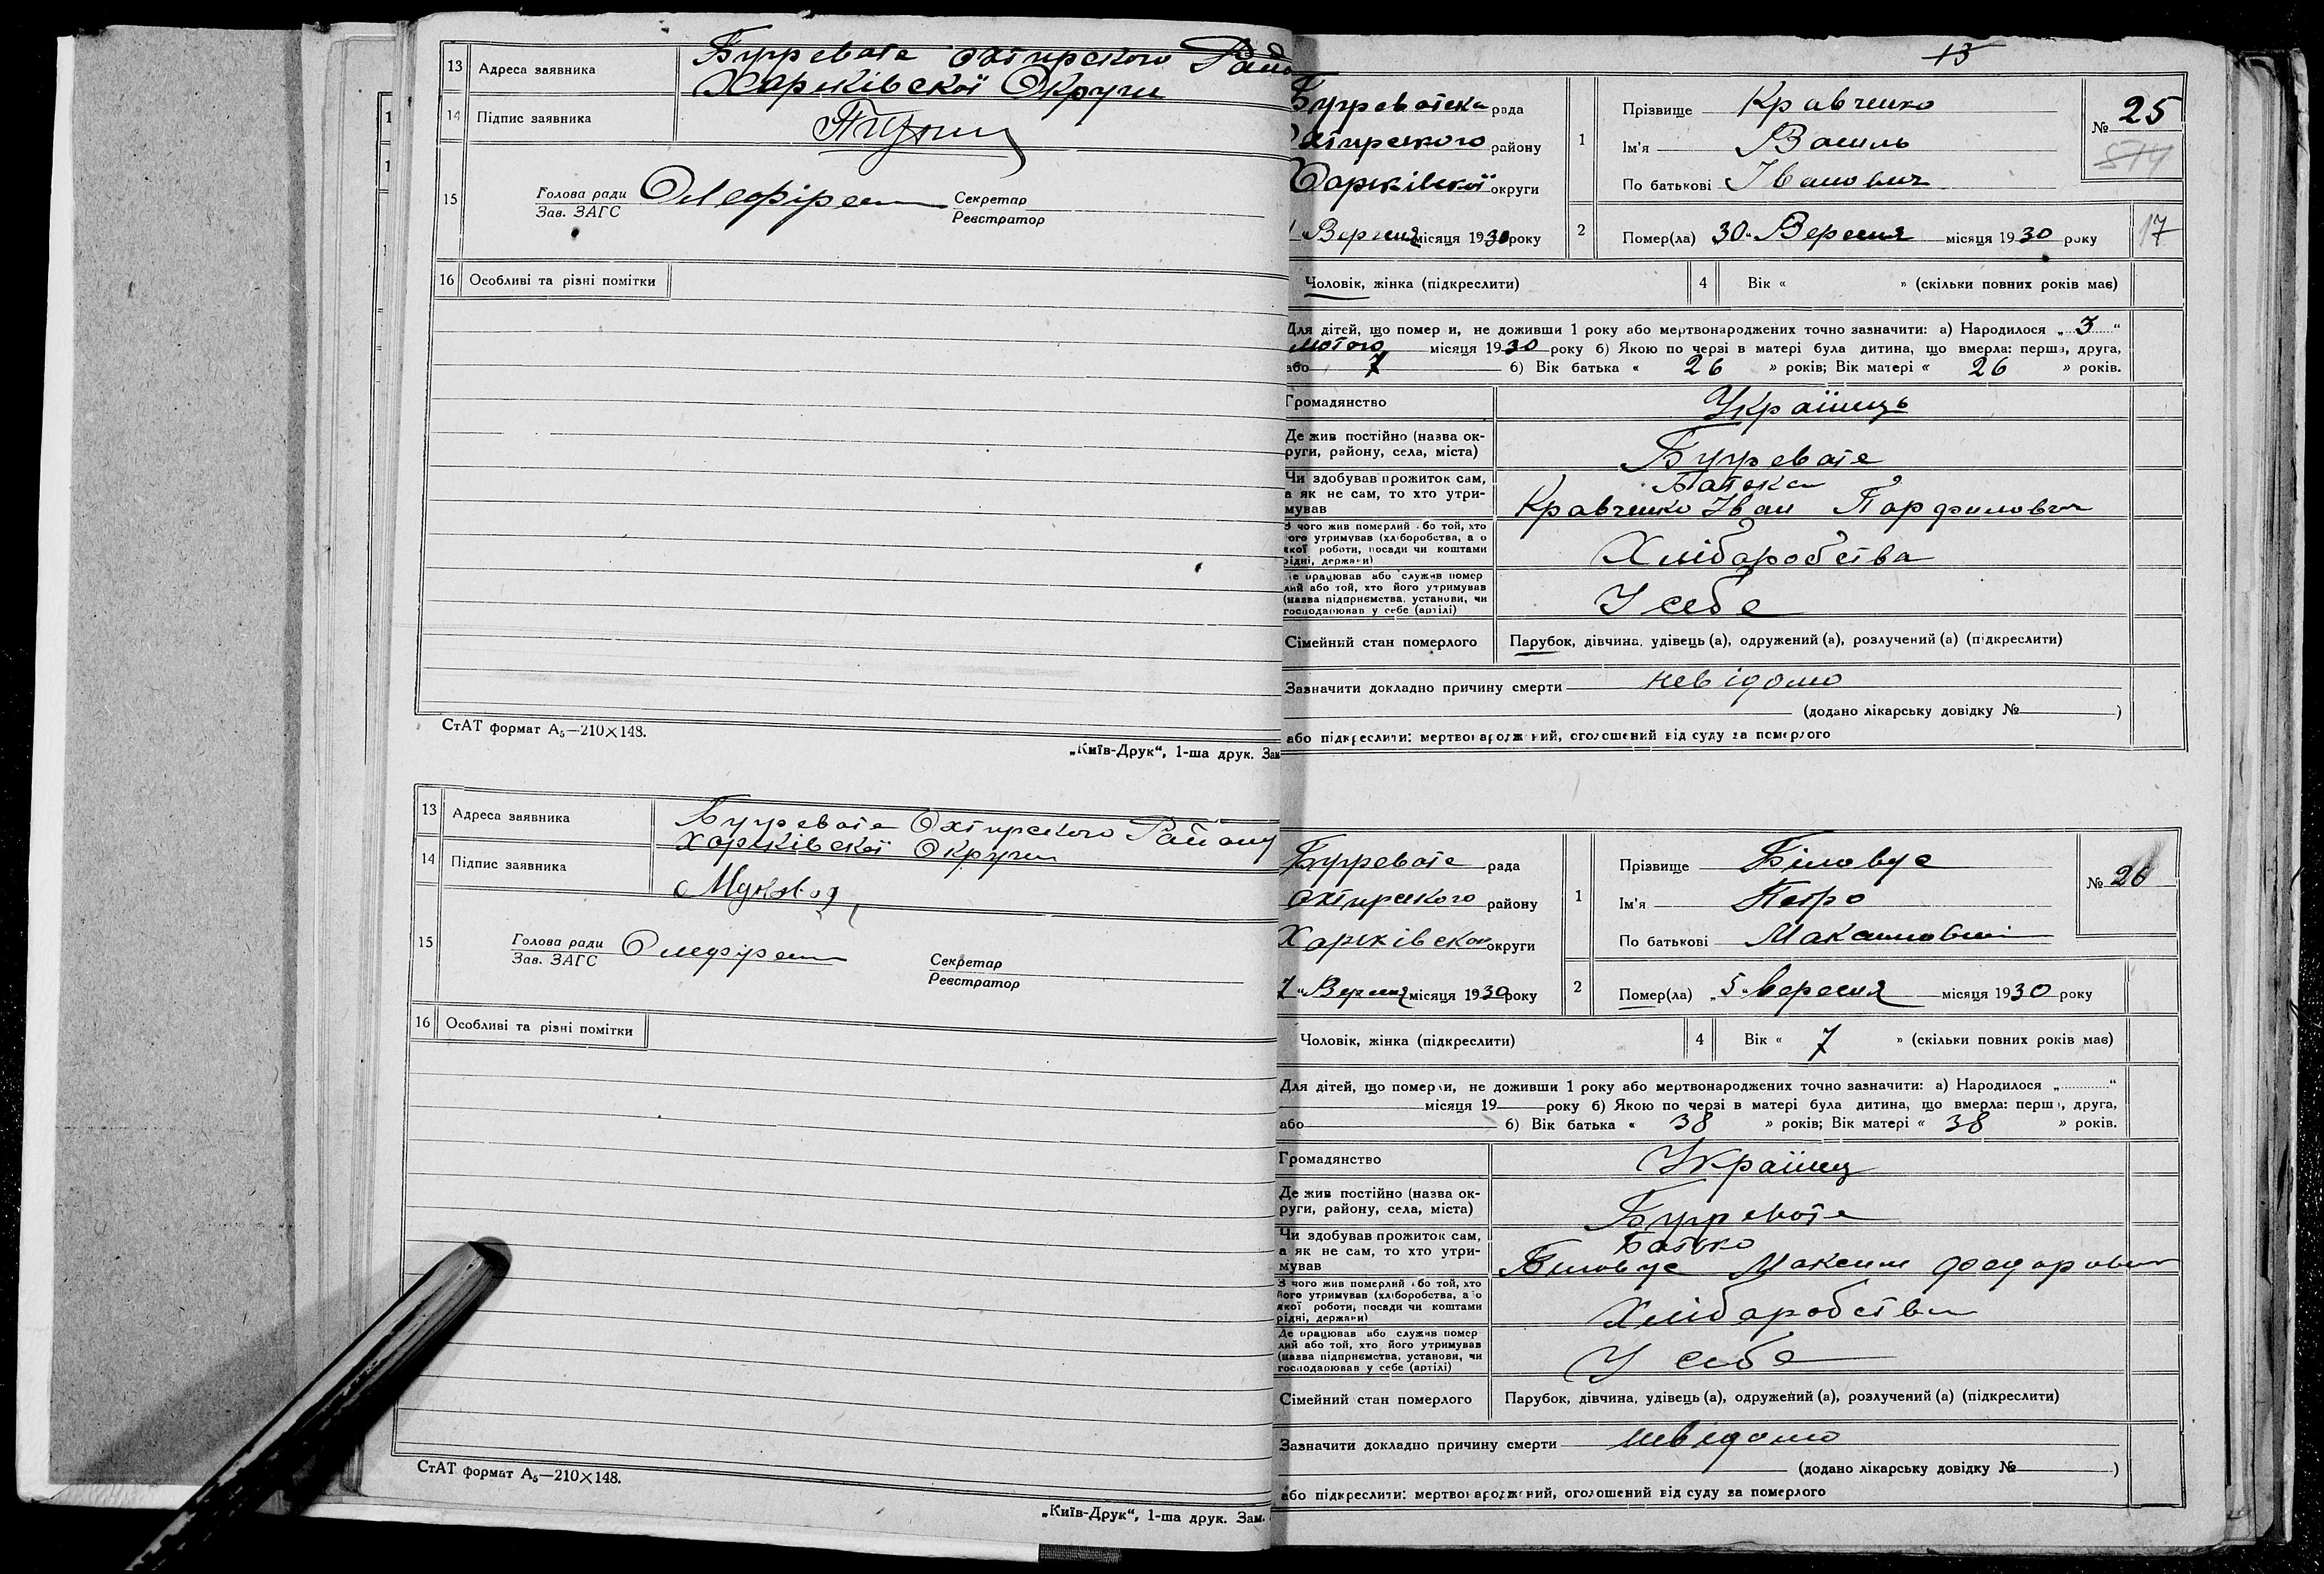 13 Адреса заявника Бугревате Охтирского Райо
Харківскої Округи
14 Підпис заявника
15 Голова ради
Зав. ЗАГС
Секретар
Реєстратор
16 Особливі та різні помітки
СтАТ формат А₅—210×148.
„Київ-Друк“, 1-ша друк. Зам
13 Адреса заявника Бугревате Охтирского Району
Харківскої Округи
14 Підпис заявника
15 Голова ради
Зав. ЗАГС
Секретар
Реєстратор
16 Особливі та різні помітки
СтАТ формат А₅—210×148.
„Київ-Друк“, 1-ша друк. Зам.
13
Бугреватска рада
хтирского району
Харківскої округи
Вересня місяця 1930 року
1 Прізвище Кравченко
Ім'я Василь
По батькові Іванович
№ 25
574
2 Помер(ла) 30 „ Вересня місяця 1930 року
17
Чоловік, жінка (підкреслити) 4 Вік « » (скільки повних років має)
Для дітей, що помер и, не доживши 1 року або мертвонароджених точно зазначити: а) Народилося „ 3 “
лютого місяця 1930 року б) Якою по черзі в матері була дитина, що вмерла: перша, друга,
або 7 б) Вік батька « 26 » років; Вік матері « 26 » років.
Громадянство Українець
Де жив постійно (назва ок-
руги, району, села, міста) Бугревате
Чи здобував прожиток сам,
а як не сам, то хто утри-
мував
Батька
Кравченко Іван Парфилович
З чого жив померлий або той, хто
його утримував (хліборобства, або
якої роботи, посади чи коштами
рідні, держави) Хліборобства
Де працював або служив помер
лий або той, хто його утримував
(назва підприємства, установи, чи
господарював у себе (артілі) У себе
Сімейний стан померлого Парубок, дівчина, удівець (а), одружений (а), розлучений (а) (підкреслити)
Зазначити докладно причину смерти невідомо
(додано лікарську довідку № )
або підкреслити: мертвонароджений, оголошений від суду за померлого
Бугревате рада
Охтирского району
Харківской округи
7 „ Вересня місяця 1930 року
1 Прізвище Біловус
Ім'я Петро
По батькові Максимович
№ 26
2 Помер(ла) „ 5 „ вересня місяця 1930 року
Чоловік, жінка (підкреслити) 4 Вік « 7 » (скільки повних років має)
Для дітей, що померли, не доживши 1 року або мертвонароджених точно зазначити: а) Народилося „ “
місяця 19 року б) Якою по черзі в матері була дитина, що вмерла: перша, друга,
або б) Вік батька « 38 » років; Вік матері « 38 » років.
Громадянство Українец
Де жив постійно (назва ок-
руги, району, села, міста) Бугревате
Чи здобував прожиток сам,
а як не сам, то хто утри-
мував
Батько
Біловус Максим Федорович
З чого жив померлий або той, хто
його утримував (хліборобства, або
якої роботи, посади чи коштами
рідні, держави) Хліборобства
Де працював або служив помер
лий або той, хто його утримував
(назва підприємства, установи, чи
господарював у себе (артілі) У себе
Сімейний стан померлого Парубок, дівчина, удівець (а), одружений (а), розлучений (а) (підкреслити)
Зазначити докладно причину смерти невідомо
(додано лікарську довідку № )
або підкреслити: мертвонароджений, оголошений від суду за померлого